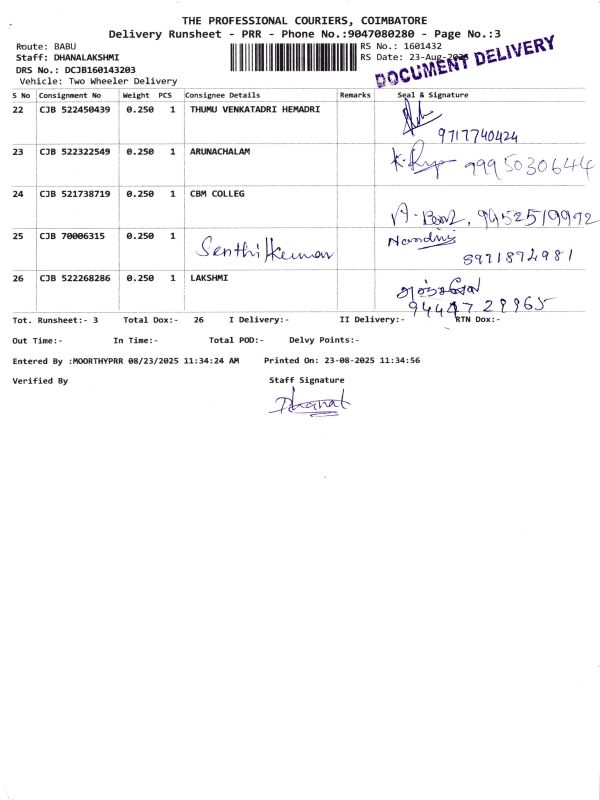 THE PROFESSIONAL COURIERS, COIMBATORE
Delivery Runsheet - PRR - Phone No.:9047080280 - Page No.:3
Route: BABU RS No.: 1601432
Staff: DHANALAKSHMI RS Date: 23-Aug-2025
DRS No.: DCJB160143203
DOCUMENT DELIVERY
Vehicle: Two Wheeler Delivery
S No Consignment No Weight PCS Consignee Details Remarks Seal & Signature
22 CJB 522450439 0.250 1 THUMU VENKATADRI HEMADRI
9717740424
23 CJB 522322549 0.250 1 ARUNACHALAM
9995030644
24 CJB 521738719 0.250 1 CBM COLLEG
9952519992
25 CJB 70006315 0.250 1 Senthilkumar Nandhni
8971874981
26 CJB 522268286 0.250 1 LAKSHMI
9444729965
Tot. Runsheet:- 3 Total Dox:- 26 I Delivery:- II Delivery:- RTN Dox:-
Out Time:- In Time:- Total POD:- Delvy Points:-
Entered By :MOORTHYPRR 08/23/2025 11:34:24 AM Printed On: 23-08-2025 11:34:56
Verified By Staff Signature
Dhanal